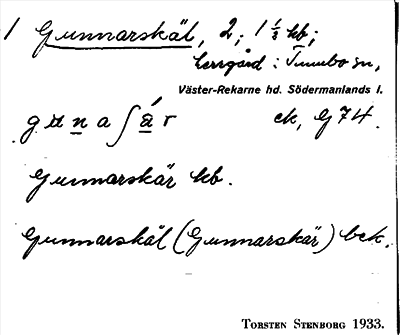 1 Gunnarskäl, 2; 1 1/8 kb;
herrgård: Tumbo sn,
Väster-Rekarne hd. Södermanlands l.
ek, G 74.
Gunnarskär kb.
Gunnarskäl (Gunnarskär) bek.
TORSTEN STENBORG 1933.